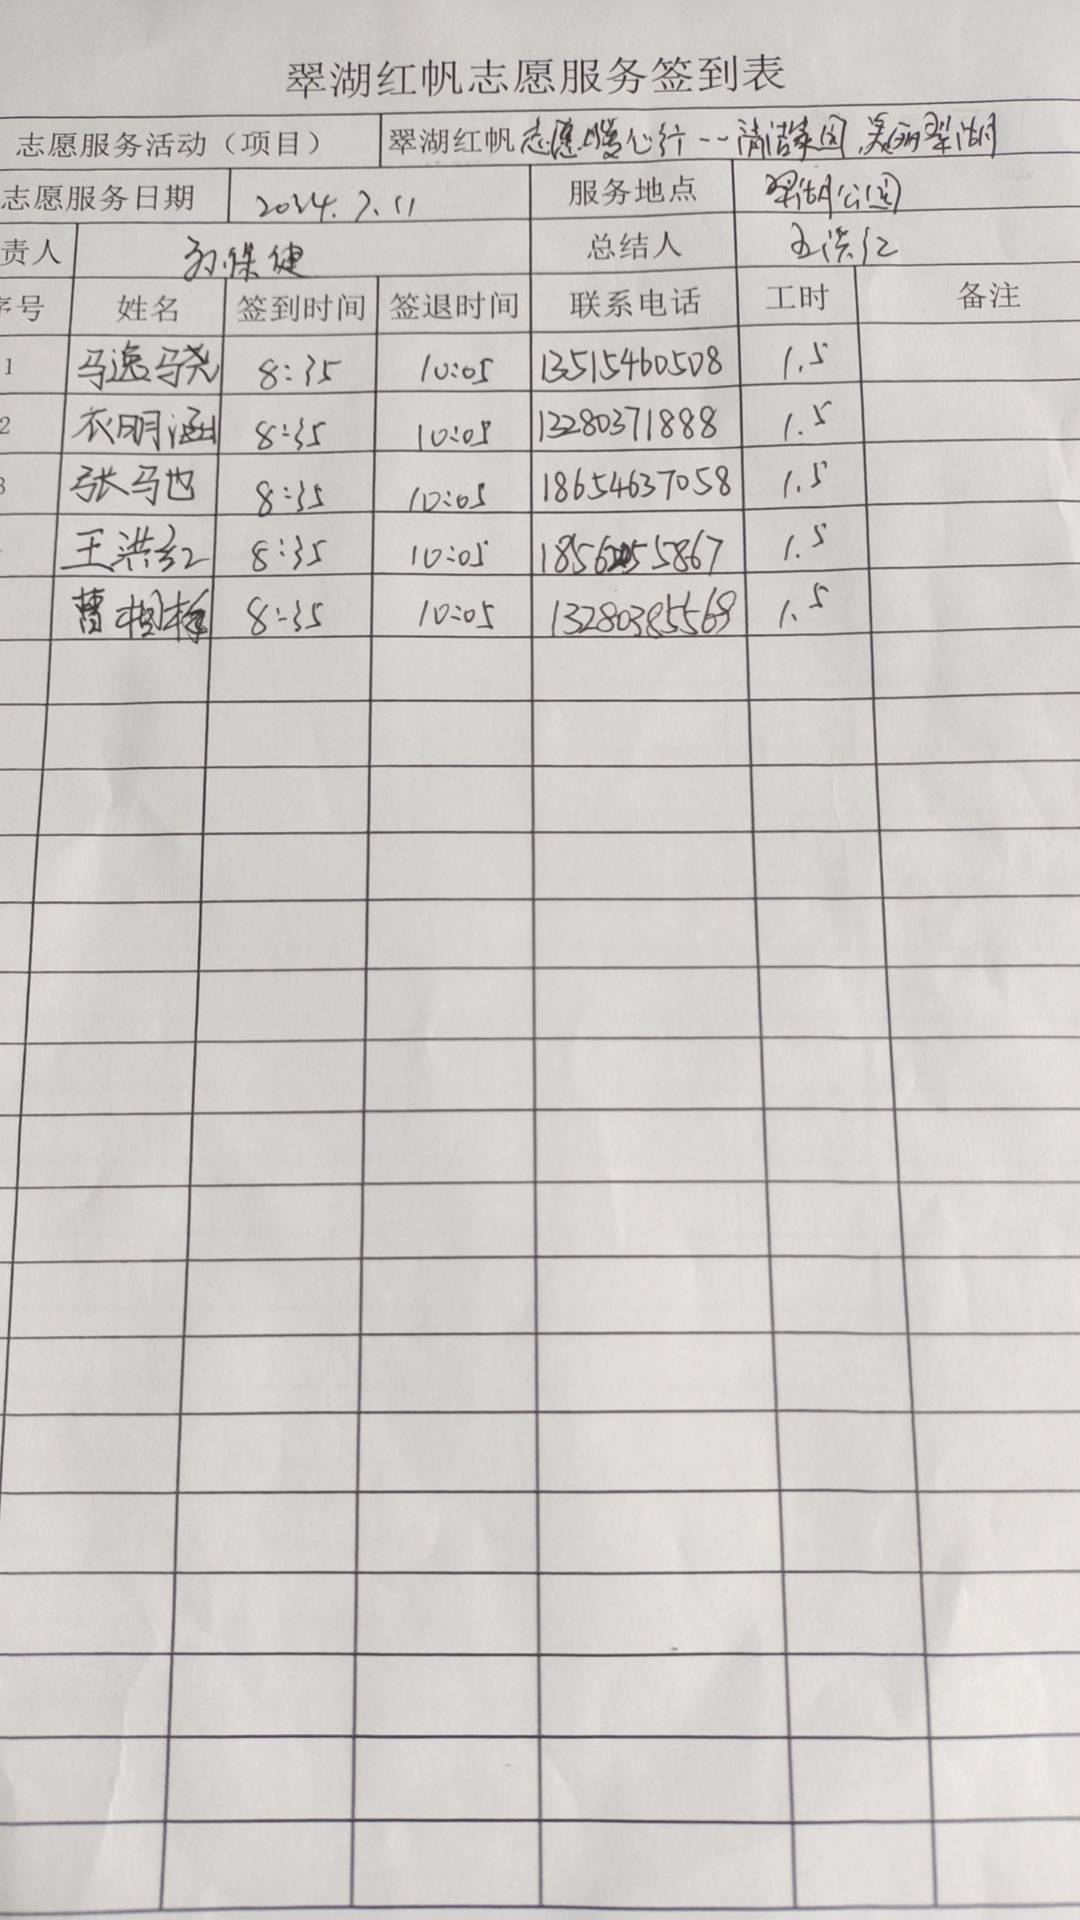 翠湖红帆志愿服务签到表
志愿服务活动（项目） 翠湖红帆志愿暖心行--清洁家园,美丽翠湖
志愿服务日期 2024.7.11 服务地点 翠湖公园
责人 孙保健 总结人 王洪红
序号 姓名 签到时间 签退时间 联系电话 工时 备注
1 马逸骁 8:35 10:05 13515460508 1.5
2 衣明涵 8:35 10:05 13280371888 1.5
3 张驰 8:35 10:05 18654637058 1.5
王洪红 8:35 10:05 1.5
曹 8:35 10:05 13280385569 1.5